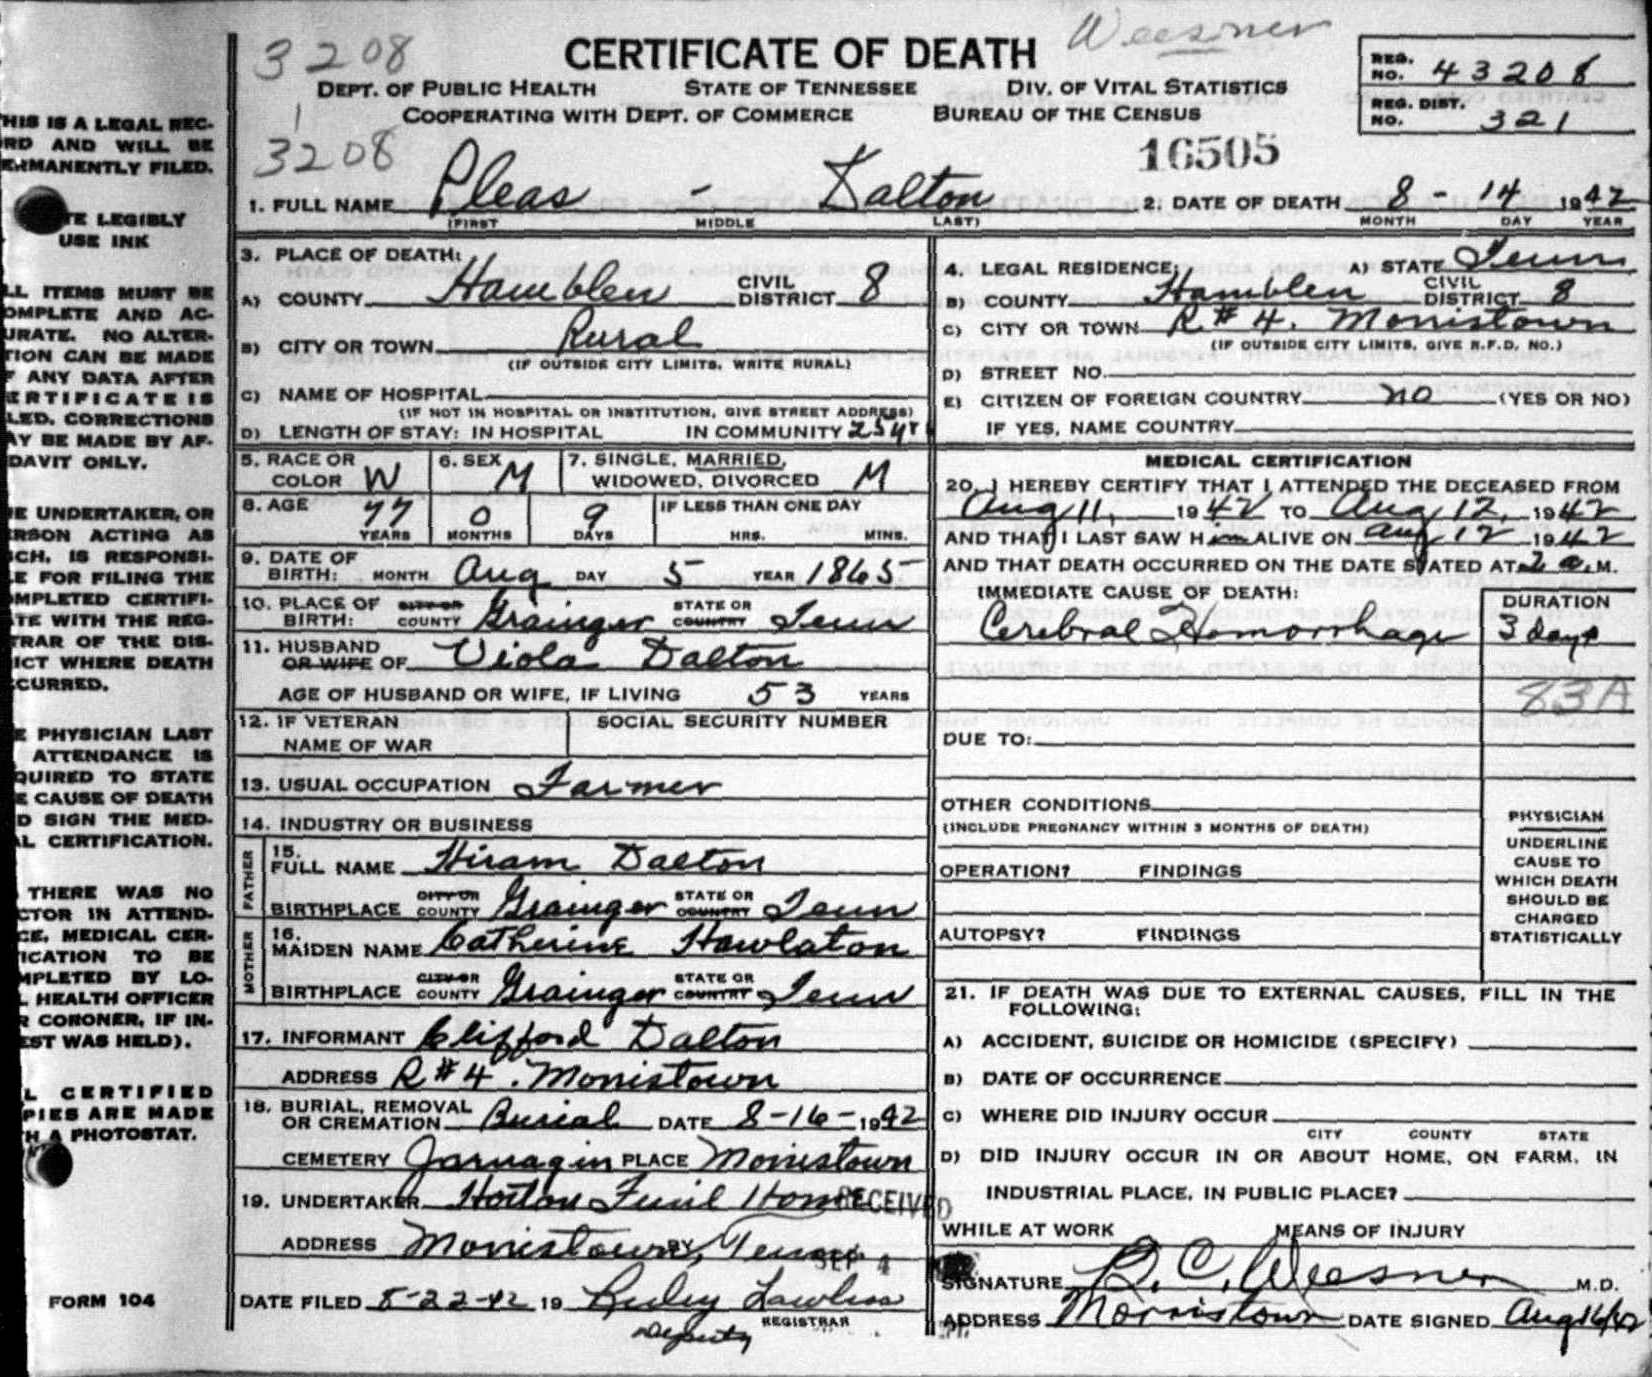 3208
CERTIFICATE OF DEATH
Weesner
REG. NO. 43208
DEPT. OF PUBLIC HEALTH STATE OF TENNESSEE DIV. OF VITAL STATISTICS
1
COOPERATING WITH DEPT. OF COMMERCE BUREAU OF THE CENSUS
REG. DIST. NO. 321
3208
16505
1. FULL NAME Pleas - Dalton 2. DATE OF DEATH 8 - 14 1942
(FIRST MIDDLE LAST) MONTH DAY YEAR
3. PLACE OF DEATH:
A) COUNTY Hamblen CIVIL DISTRICT 8
B) CITY OR TOWN Rural
(IF OUTSIDE CITY LIMITS, WRITE RURAL)
C) NAME OF HOSPITAL
(IF NOT IN HOSPITAL OR INSTITUTION, GIVE STREET ADDRESS)
D) LENGTH OF STAY: IN HOSPITAL IN COMMUNITY 25 yrs
4. LEGAL RESIDENCE: A) STATE Tenn
B) COUNTY Hamblen CIVIL DISTRICT 8
C) CITY OR TOWN R#4. Morristown
(IF OUTSIDE CITY LIMITS, GIVE R.F.D. NO.)
D) STREET NO.
E) CITIZEN OF FOREIGN COUNTRY no (YES OR NO)
IF YES, NAME COUNTRY
5. RACE OR COLOR W 6. SEX M 7. SINGLE, MARRIED, WIDOWED, DIVORCED M
8. AGE 77 0 9 IF LESS THAN ONE DAY
YEARS MONTHS DAYS HRS. MINS.
9. DATE OF BIRTH: MONTH Aug DAY 5 YEAR 1865
10. PLACE OF BIRTH: CITY OR COUNTY Grainger STATE OR COUNTRY Tenn
11. HUSBAND OR WIFE OF Viola Dalton
AGE OF HUSBAND OR WIFE, IF LIVING 53 YEARS
12. IF VETERAN NAME OF WAR SOCIAL SECURITY NUMBER
13. USUAL OCCUPATION Farmer
14. INDUSTRY OR BUSINESS
FATHER
15. FULL NAME Hiram Dalton
BIRTHPLACE CITY OR COUNTY Grainger STATE OR COUNTRY Tenn
MOTHER
16. MAIDEN NAME Catherine Hawlaton
BIRTHPLACE CITY OR COUNTY Grainger STATE OR COUNTRY Tenn
17. INFORMANT Clifford Dalton
ADDRESS R#4. Morristown
18. BURIAL, REMOVAL OR CREMATION Burial DATE 8-16-1942
CEMETERY Jarnagin PLACE Morristown
19. UNDERTAKER Horton Funl Home
RECEIVED
ADDRESS Morristown, Tenn
BY
SEP 4
DATE FILED 8-22-42 19 Ruley Lawless
REGISTRAR
Deputy
MEDICAL CERTIFICATION
20. I HEREBY CERTIFY THAT I ATTENDED THE DECEASED FROM
Aug 11, 1942 TO Aug 12, 1942
AND THAT I LAST SAW Him ALIVE ON Aug 12 1942
AND THAT DEATH OCCURRED ON THE DATE STATED AT 2 a.M.
IMMEDIATE CAUSE OF DEATH: DURATION
Cerebral Hemorrhage 3 days
83A
DUE TO:
OTHER CONDITIONS
(INCLUDE PREGNANCY WITHIN 3 MONTHS OF DEATH)
OPERATION? FINDINGS
AUTOPSY? FINDINGS
PHYSICIAN
UNDERLINE
CAUSE TO
WHICH DEATH
SHOULD BE
CHARGED
STATISTICALLY
21. IF DEATH WAS DUE TO EXTERNAL CAUSES, FILL IN THE
FOLLOWING:
A) ACCIDENT, SUICIDE OR HOMICIDE (SPECIFY)
B) DATE OF OCCURRENCE
C) WHERE DID INJURY OCCUR
CITY COUNTY STATE
D) DID INJURY OCCUR IN OR ABOUT HOME, ON FARM, IN
INDUSTRIAL PLACE, IN PUBLIC PLACE?
WHILE AT WORK MEANS OF INJURY
SIGNATURE R. C. Weesner M.D.
ADDRESS Morristown DATE SIGNED Aug 16/42
HIS IS A LEGAL REC-
RD AND WILL BE
ERMANENTLY FILED.
TE LEGIBLY
USE INK
LL ITEMS MUST BE
OMPLETE AND AC-
URATE. NO ALTER-
TION CAN BE MADE
F ANY DATA AFTER
ERTIFICATE IS
LED. CORRECTIONS
AY BE MADE BY AF-
DAVIT ONLY.
E UNDERTAKER, OR
ERSON ACTING AS
CH, IS RESPONSI-
E FOR FILING THE
MPLETED CERTIFI-
TE WITH THE REG-
TRAR OF THE DIS-
ICT WHERE DEATH
CURRED.
E PHYSICIAN LAST
ATTENDANCE IS
QUIRED TO STATE
E CAUSE OF DEATH
D SIGN THE MED-
AL CERTIFICATION.
THERE WAS NO
CTOR IN ATTEND-
CE, MEDICAL CER-
ICATION TO BE
MPLETED BY LO-
L HEALTH OFFICER
R CORONER, IF IN-
EST WAS HELD).
L CERTIFIED
PIES ARE MADE
H A PHOTOSTAT.
FORM 104